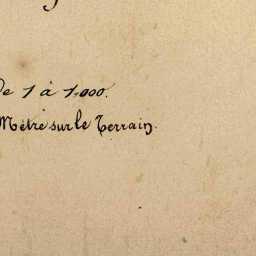 de 1 à 1.000.
Mètre sur le Terrain.